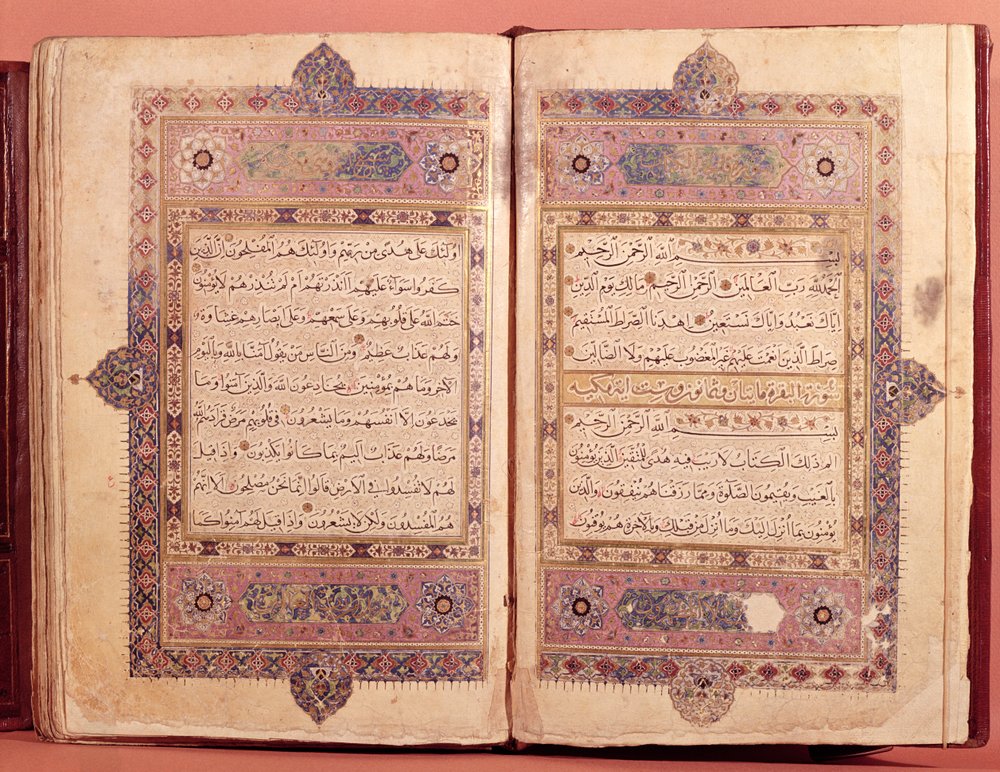 بسم الله الرحمن الرحيم
الحمد لله رب العالمين الرحمن الرحيم مالك يوم الدين
اياك نعبد واياك نستعين اهدنا الصراط المستقيم
صراط الذين انعمت عليهم غير المغضوب عليهم ولا الضالين
سورة البقرة ماتان وثمانون وست اية مكيه
بسم الله الرحمن الرحيم
الم ذلك الكتاب لا ريب فيه هدى للمتقين الذين يؤمنون
بالغيب ويقيمون الصلوة ومما رزقناهم ينفقون والذين
يؤمنون بما انزل اليك وما انزل من قبلك وبالاخرة هم يوقنون
اولئك على هدى من ربهم واولئك هم المفلحون ان الذين
كفروا سواء عليهم أانذرتهم ام لم تنذرهم لا يؤمنون
ختم الله على قلوبهم وعلى سمعهم وعلى ابصارهم غشاوة و
ولهم عذاب عظيم ومن الناس من يقول امنا بالله وباليوم
الاخر وما هم بمؤمنين يخادعون الله والذين آمنوا وما
يخدعون الا انفسهم وما يشعرون في قلوبهم مرض فزادهم الله
مرضا ولهم عذاب اليم بما كانوا يكذبون واذا قيل
لهم لا تفسدوا في الارض قالوا انما نحن مصلحون الا انهم
هم المفسدون ولكن لا يشعرون واذا قيل لهم آمنوا كما